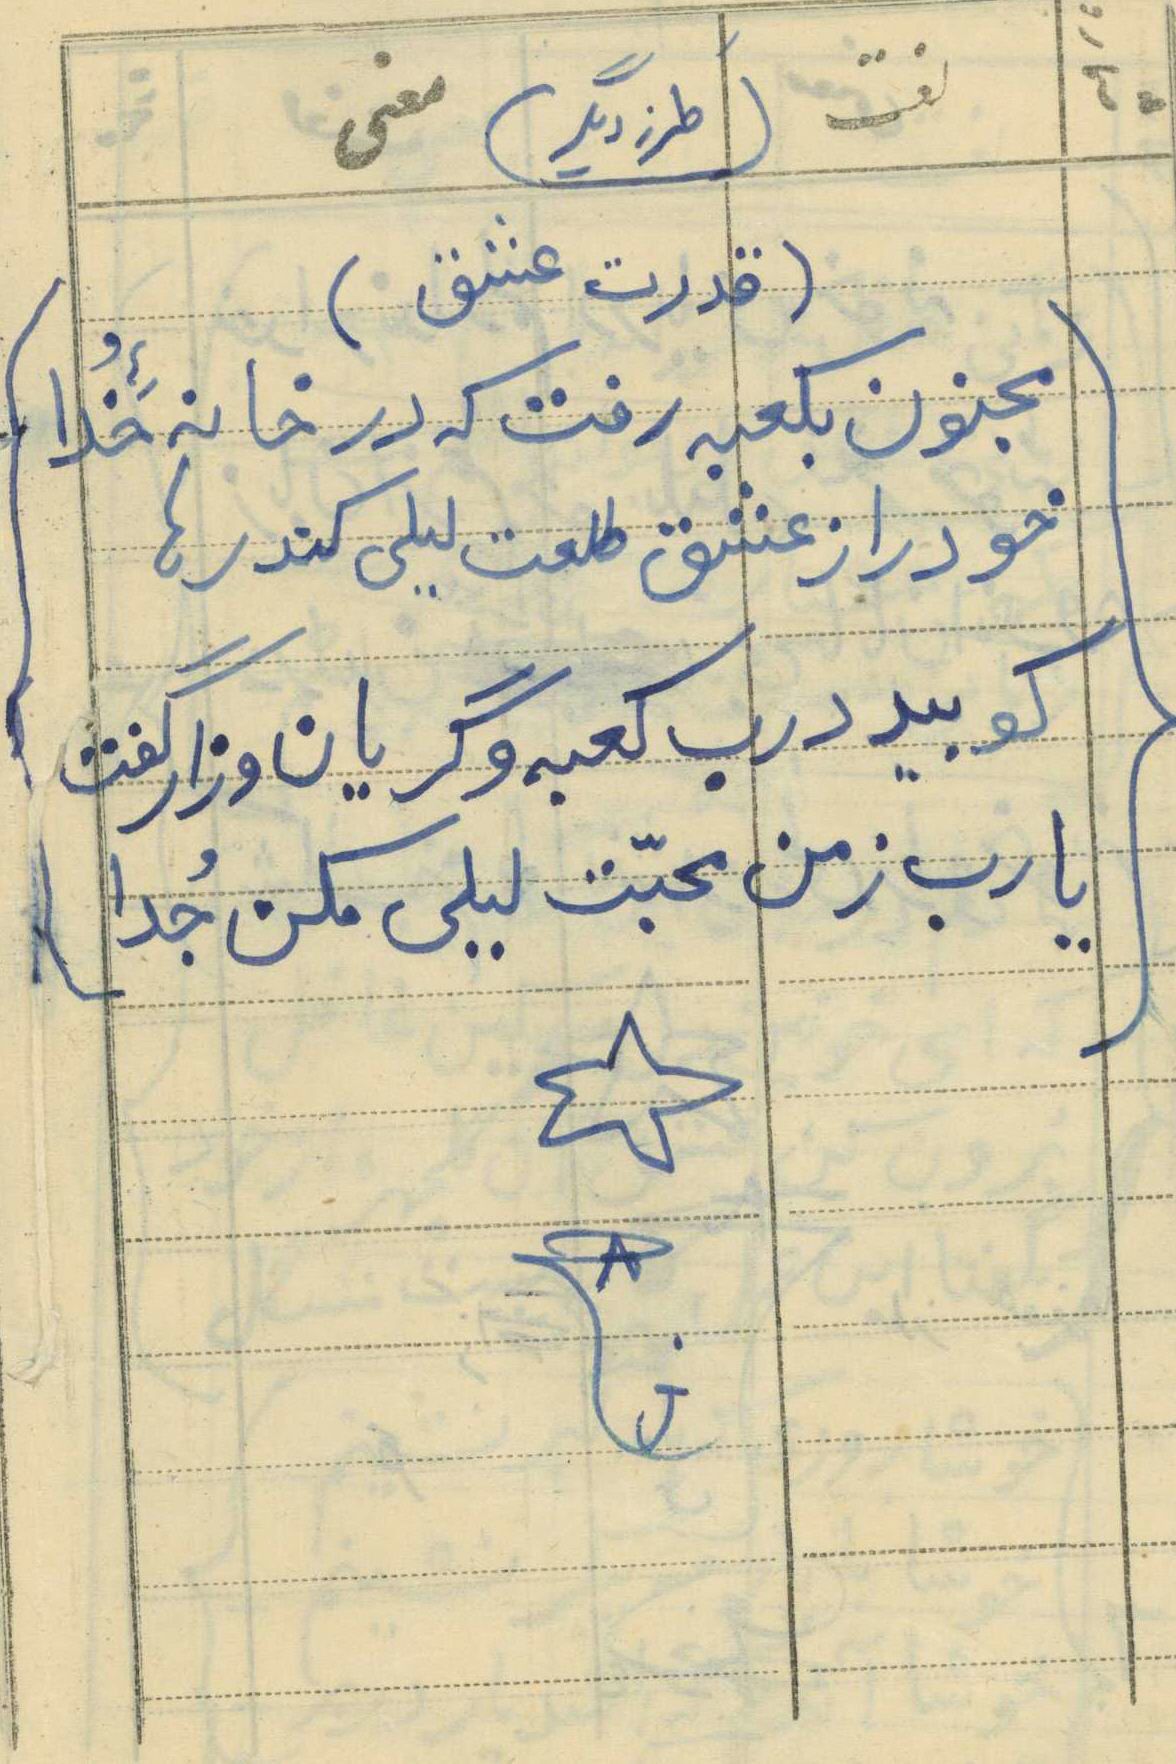 لغت معنی
(طرز دیگر)
(قدرت عشق)
مجنون بکعبه رفت که در خانهٔ خُدا
خود را ز عشق طلعت لیلی کند رها
کوبید درب کعبه و گریان و زار گفت
یا رب ز من محبّت لیلی مکن جُدا